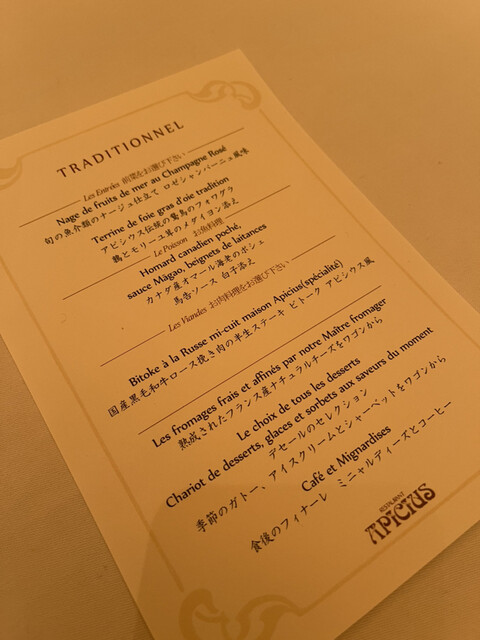 TRADITIONNEL
Les Entrées 前菜をお選び下さい
Nage de fruits de mer au Champagne Rosé
旬の魚介類のナージュ仕立て ロゼシャンパーニュ風味
Terrine de foie gras d'oie tradition
アピシウス伝統の鵞鳥のフォワグラ
鶏とモリーユ茸のメダイヨン添え
Le Poisson お魚料理
Homard canadien poché,
sauce Màgao, beignets de laitances
カナダ産オマール海老のポシェ
馬告ソース 白子添え
Les Viandes お肉料理をお選び下さい
Bitoke à la Russe mi-cuit maison Apicius(spécialité)
国産黒毛和牛ロース挽き肉の半生ステーキ ビトーク アピシウス風
Les fromages frais et affinés par notre Maître fromager
熟成されたフランス産ナチュラルチーズをワゴンから
Le choix de tous les desserts
Chariot de desserts, glaces et sorbets aux saveurs du moment
デセールのセレクション
季節のガトー、アイスクリームとシャーベットをワゴンから
Café et Mignardises
食後のフィナーレ ミニャルディーズとコーヒー
RESTAURANT
APICIUS